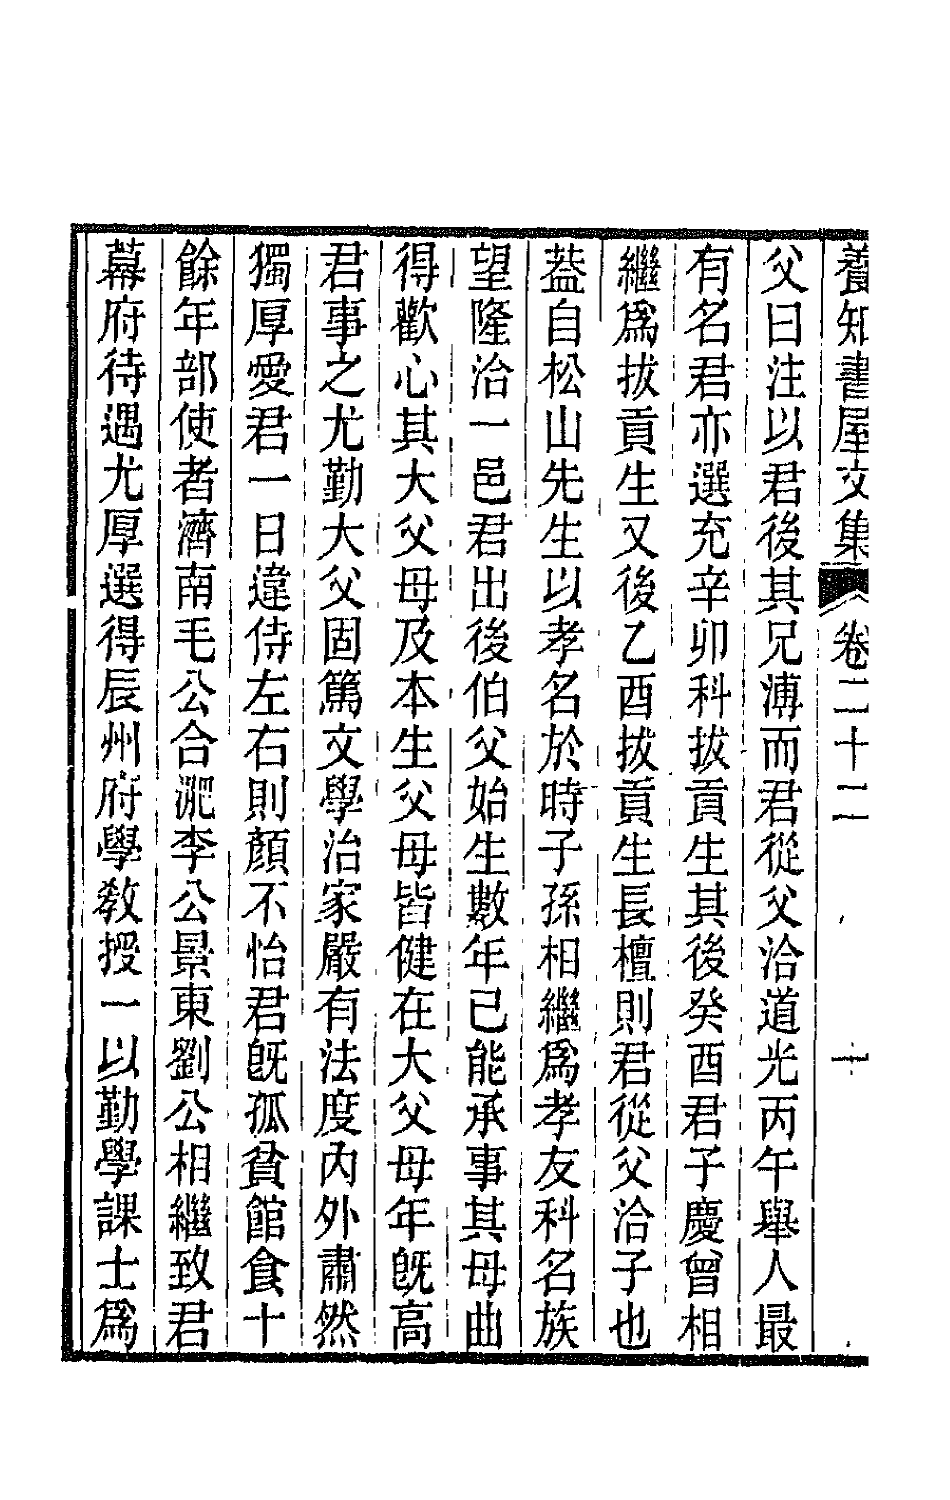 養知書屋文集 卷二十二 十
父曰注以君後其兄溥而君從父洽道光丙午舉人最
有名君亦選充辛卯科拔貢生其後癸酉君子慶曾相
繼爲拔貢生又後乙酉拔貢生長檀則君從父洽子也
葢自松山先生以孝名於時子孫相繼爲孝友科名族
望隆洽一邑君出後伯父始生數年已能承事其母曲
得歡心其大父母及本生父母皆健在大父母年旣高
君事之尤勤大父固篤文學治家嚴有法度內外肅然
獨厚愛君一日違侍左右則顏不怡君旣孤貧館食十
餘年部使者濟南毛公合淝李公景東劉公相繼致君
幕府待遇尤厚選得辰州府學教授一以勤學課士爲